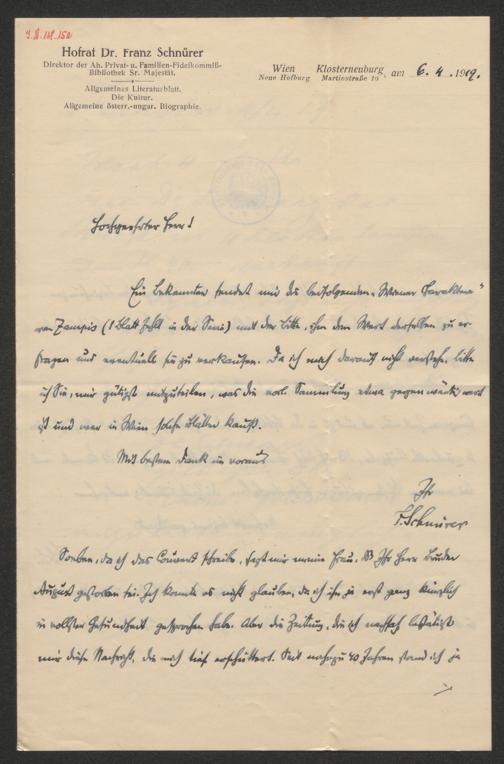 I.N. 141.152
Hofrat Dr. Franz Schnürer
Direktor der Ah. Privat- u. Familien-Fideikommiß-
Bibliothek Sr. Majestät.
Allgemeines Literaturblatt.
Die Kultur.
Allgemeine österr.-ungar. Biographie.
Wien Klosterneuburg, am 6. 4. 1919.
Neue Hofburg Martinstraße 10
Hochgeehrter Herr!
Ein Bekannter sendet mir die beifolgenden „Wiener Charaktere"
von Zampis (1 Blatt fehlt in der Serie) mit der Bitte, ihm den Wert derselben zu er-
fragen und eventuell sie zu verkaufen. Da ich mich darauf nicht verstehe, bitte
ich Sie, mir gütigst mitzuteilen, was die vorl. Sammlung etwa gegenwärtig wert
ist und wer in Wien solche Blätter kauft.
Mit bestem Dank im voraus
Ihr
F. Schnürer
Soeben, da ich das Couvert schreibe, sagt mir meine Frau, daß Ihr Herr Bruder
August gestorben sei. Ich konnte es nicht glauben, da ich ihn ja erst ganz kürzlich
in vollster Gesundheit gesprochen habe. Aber die Zeitung, die ich nachsah, bestätigt
mir diese Nachricht, die mich tief erschüttert. Seit nahezu 40 Jahren stand ich ja